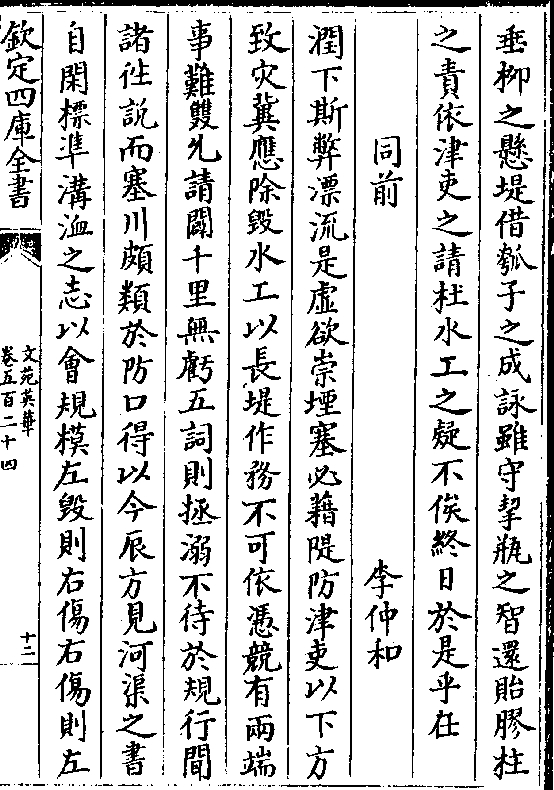 垂柳之懸堤借瓠子之成詠雖守挈瓶之智還貽膠柱
之責依津吏之請杜水工之疑不俟終日於是乎在
同前 李仲和
潤下斯弊漂流是虛欲崇堙塞必藉隄防津吏以下方
致灾冀應除毁水工以長堤作務不可依憑競有兩端
事難雙允請闢千里無虧五詞則拯溺不待於規行聞
諸徃說而塞川頗類於防口得以今辰方見河渠之書
自閑標準溝洫之志以會規模左毁則右傷右傷則左
欽定四庫全書
文苑英華
卷五百二十四
十二